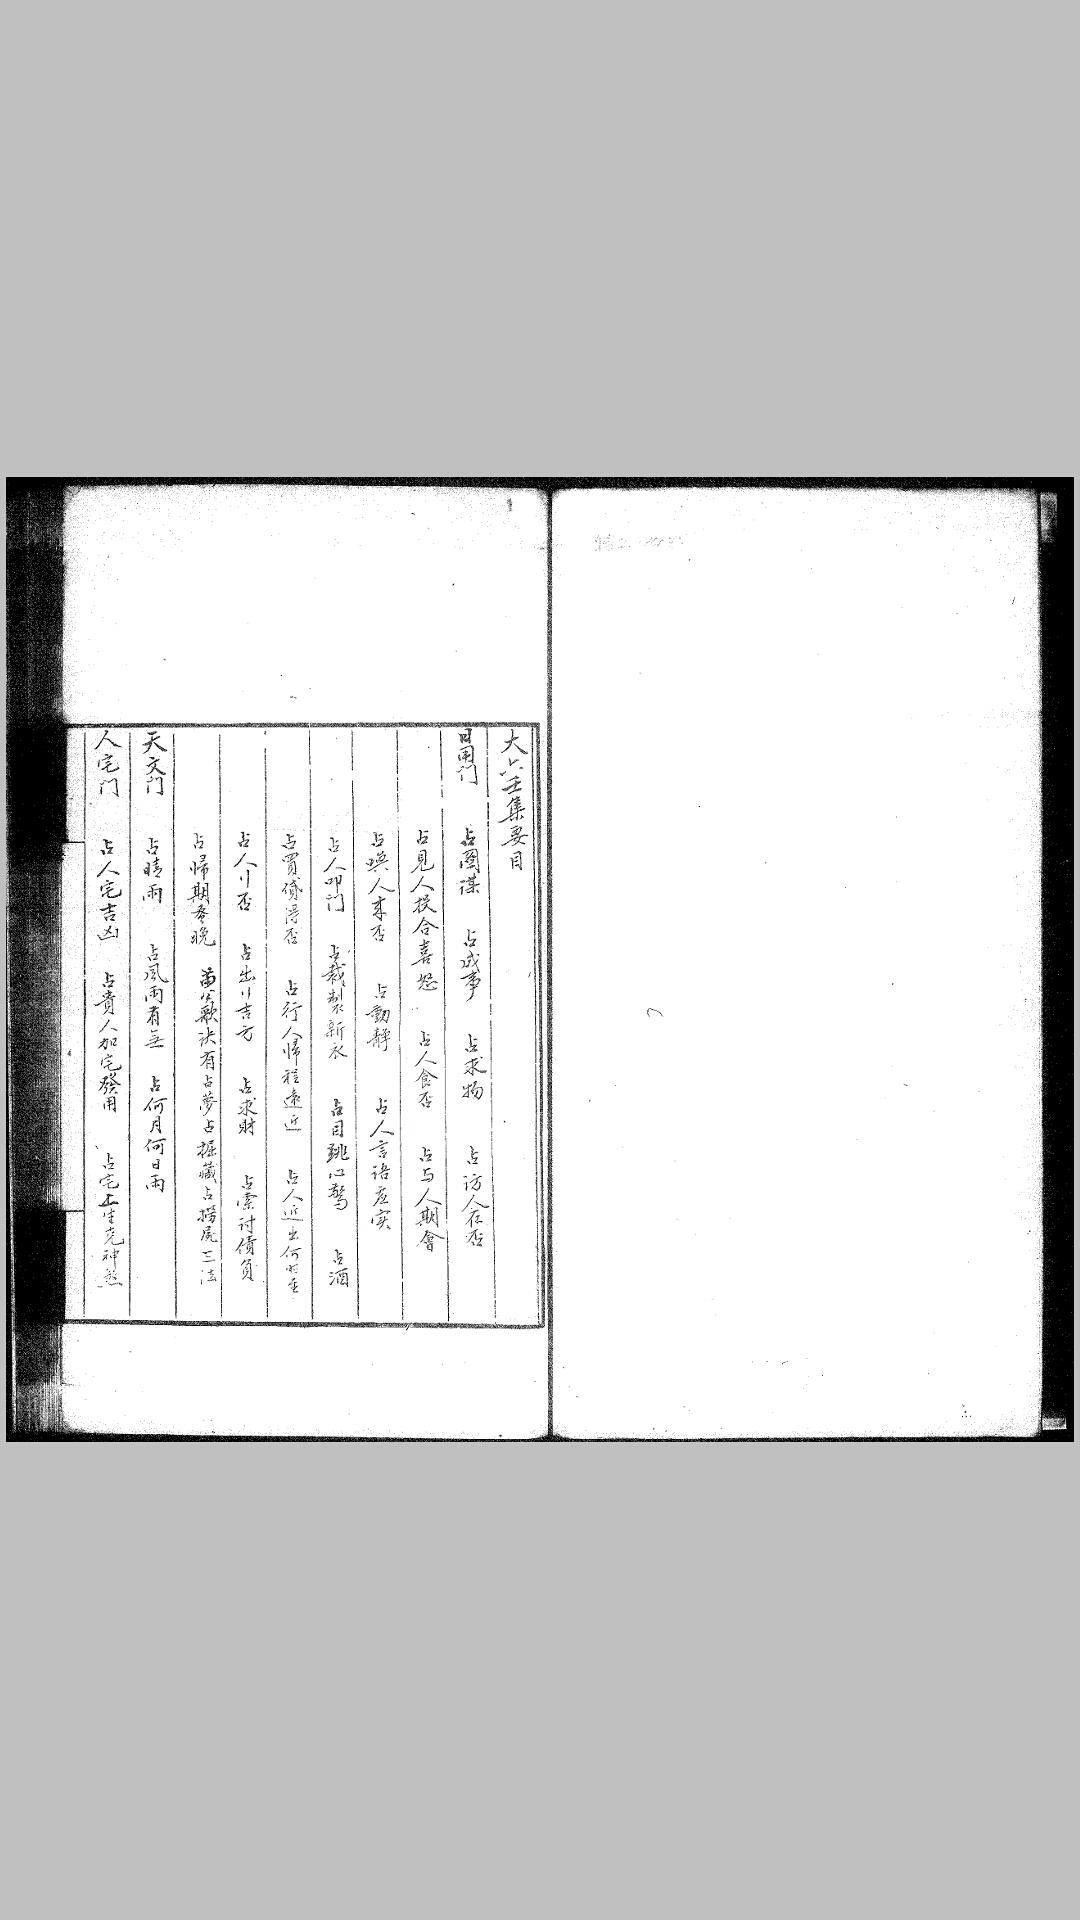 大六壬集要目
日用门 占圖謀 占成事 占求物 占访人在否
占見人投合喜怒 占人食否 占与人期會
占喚人来否 占動靜 占人言语虚实
占人叩门 占裁製新衣 占目跳心驚 占酒
占買貸得否 占行人帰程遠近 占人近出何时至
占人行否 占出行吉方 占求財 占索討債負
占帰期蚤晚 歌诀有占夢占掘藏占撈屍三法
天文门 占晴雨 占風雨有無 占何月何日雨
人宅门 占人宅吉凶 占貴人加宅發用 占宅上生克神煞